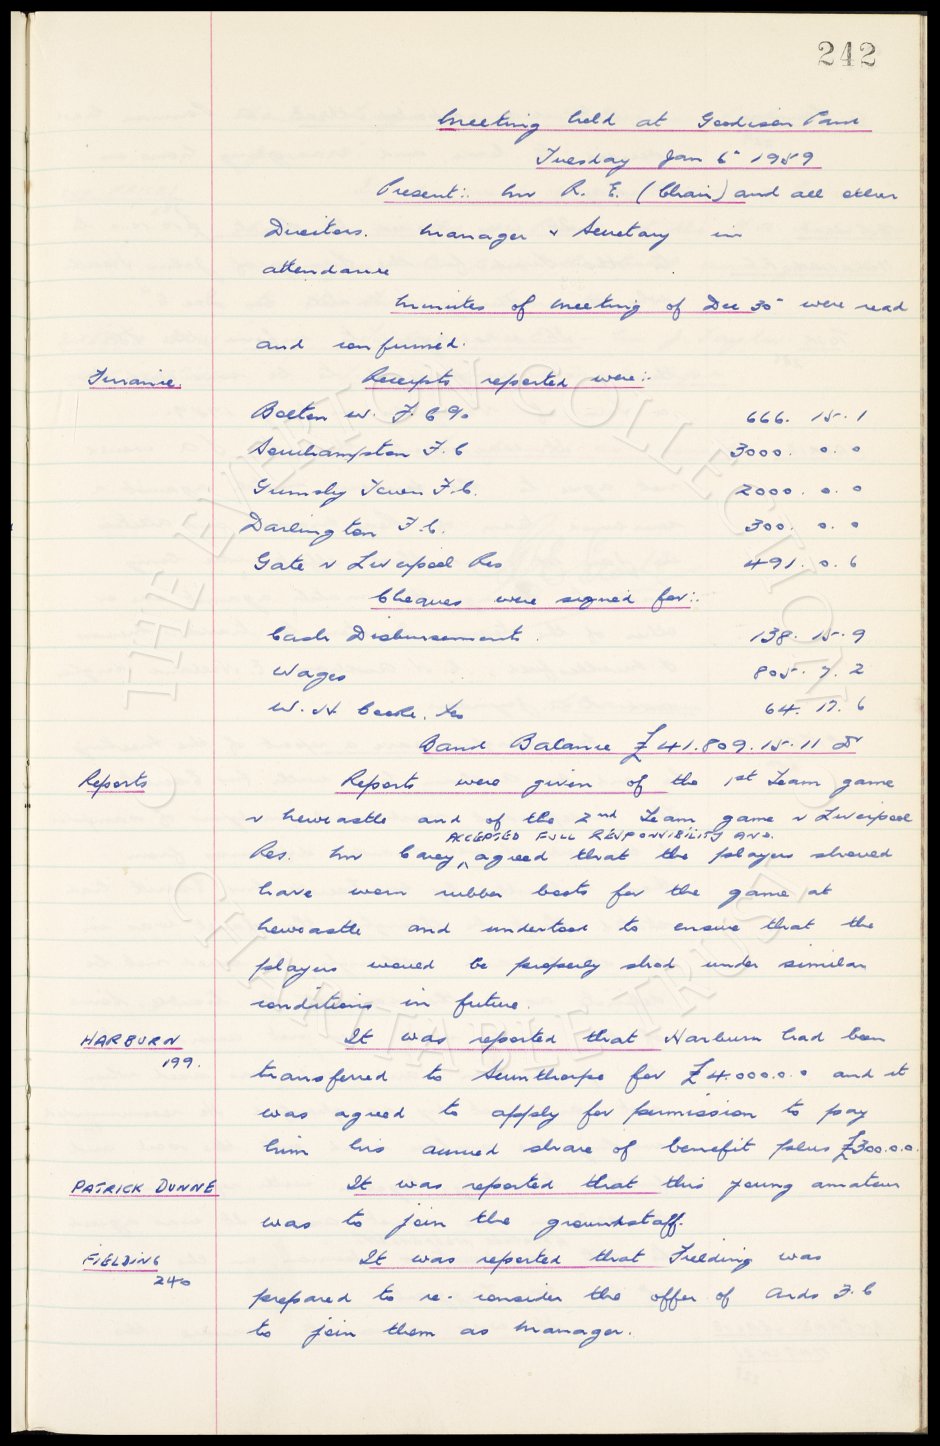 242
Meeting held at Goodison Park
Tuesday Jan 6th 1959
Present:- Mr R. E. (Chair) and all other
Directors. Manager & Secretary in
attendance
Minutes of Meeting of Dec 30th were read
and confirmed.
Finance. Receipts reported were:-
Bolton W. F.C % 666. 15. 1
Southampton F.C 3000. 0. 0
Grimsby Town F.C. 2000. 0. 0
Darlington F.C. 300. 0. 0
Gate v Liverpool Res 491. 0. 6
Cheques were signed for:-
Cash Disbursements. 138. 15. 9
Wages 805. 7. 2
W. H. Cooke. 64. 17. 6
Bank Balance £41.809.15.11 dr
Reports Reports were given of the 1st Team game
v Newcastle and of the 2nd Team game v Liverpool
ACCEPTED FULL RESPONSIBILITY AND.
Res. Mr Carey ^ agreed that the players should
have worn rubber boots for the game at
Newcastle and undertook to ensure that the
players would be properly shod under similar
conditions in future.
HARBURN It was reported that Harburn had been
199. transferred to Scunthorpe for £4.000.0.0 and it
was agreed to apply for permission to pay
him his accrued share of benefit plus £300.0.0.
PATRICK DUNNE It was reported that this young amateur
was to join the groundstaff.
FIELDING It was reported that Fielding was
240 prepared to re-consider the offer of Ards F.C
to join them as Manager.
THE EVERTON COLLECTION
CHARITABLE TRUST